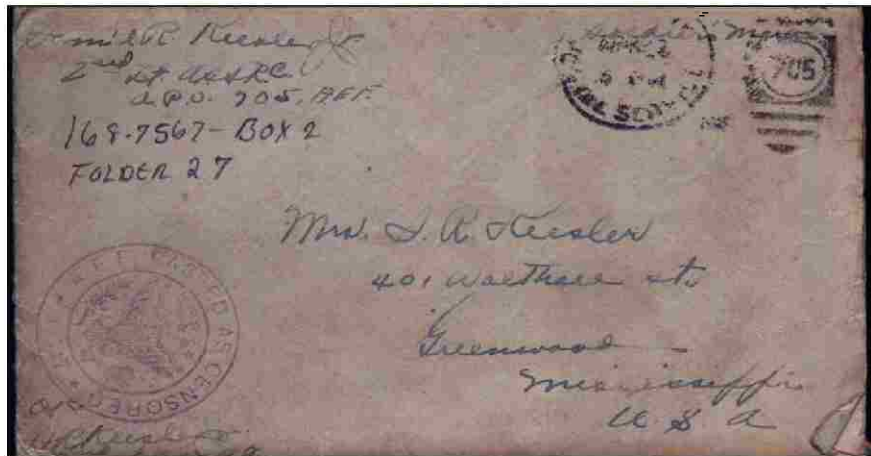 Samuel R. Keesler Jr
2nd Lt. ASSRC.
A.P.O. 705, AEF.
168.7567- BOX 2
FOLDER 27
Soldier's Mail
705
Mrs. S. R. Keesler
401 Walthall st.
Greenwood
Mississippi
U S A
A.E.F. PASSED AS CENSORED
Keesler